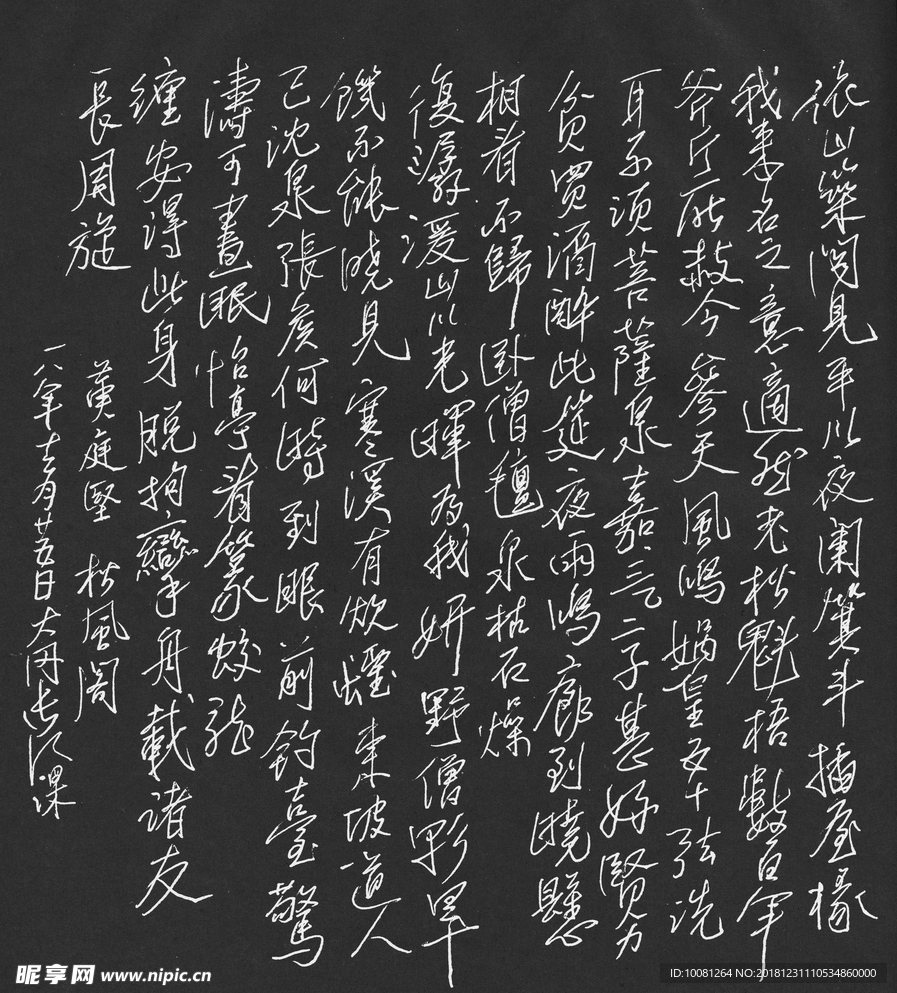 依山築閣見平川夜闌箕斗插屋椽
我來名之意適然老松魁梧數百年
斧斤所赦今參天風鳴媧皇五十弦洗
耳不須菩薩泉嘉三二子甚好賢力
貧買酒醉此筵夜雨鳴廊到曉懸
相看不歸臥僧氈泉枯石燥
復潺湲山川光暉為我妍野僧旱
饑不能曉見寒溪有炊煙東坡道人
已沈泉張侯何時到眼前釣臺驚
濤可晝眠怡亭看篆蛟龍
纏安得此身脫拘攣舟載諸友
長周旋
黄庭堅 松風閣
一八年十一月廿五日
昵享网 www.nipic.cn
ID:10081264 NO:20181231110534860000